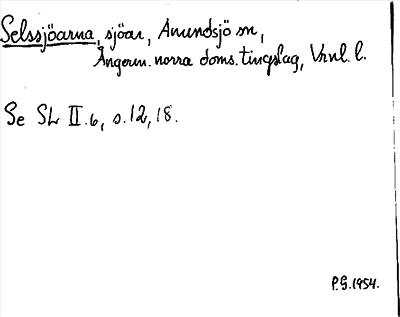 Selssjöarna, sjöar, Anundsjö sn,
Ångerm. norra doms. tingslag, Vnl. l.
Se SL II.6, s.12, 18.
P.G.1954.